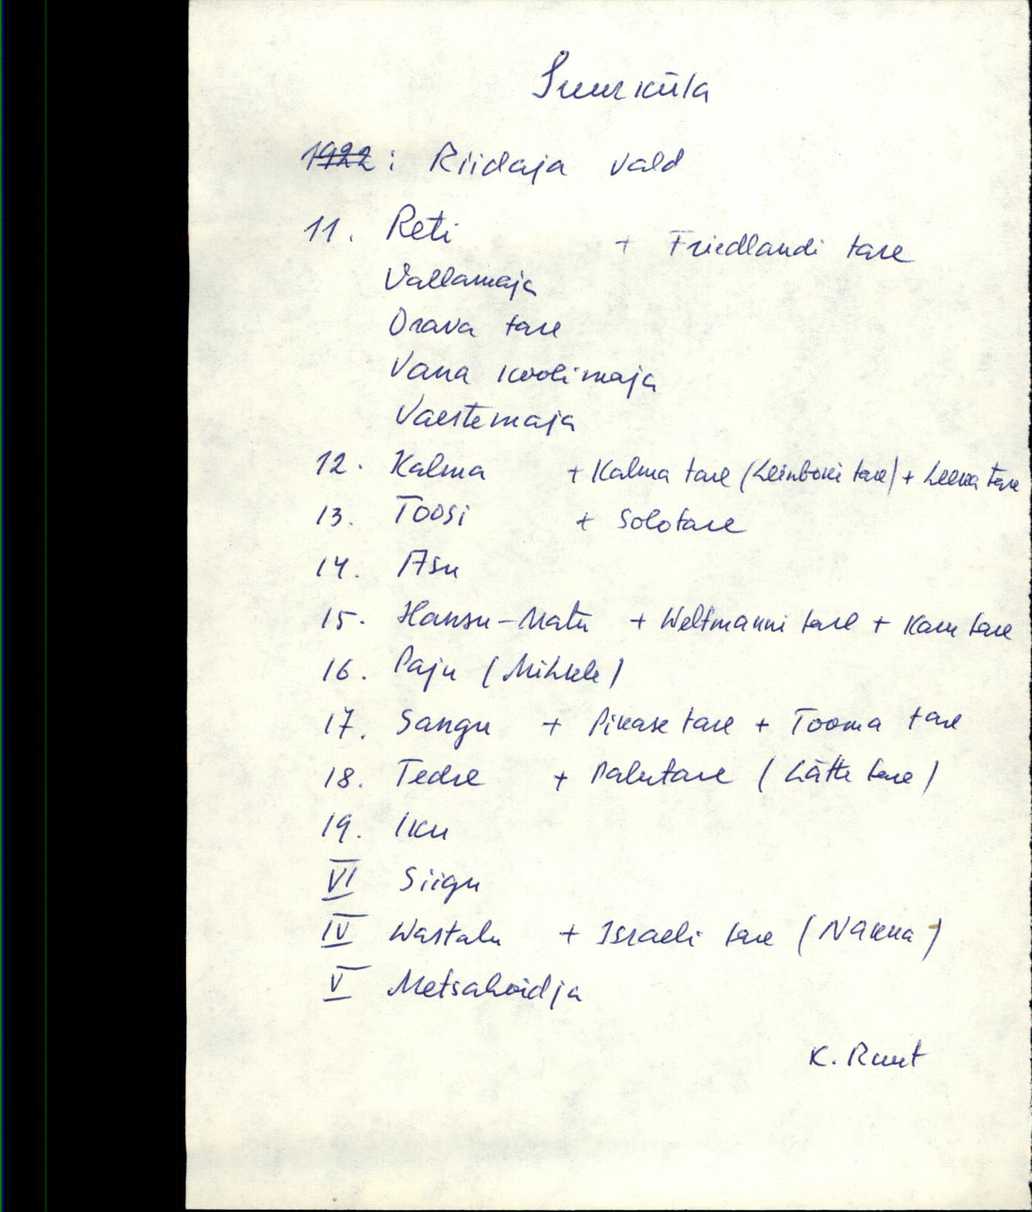 Suurküla
1922: Riidaja vald
11. Reti + Friedlandi tare
Vallamaja
Orava tare
Vana koolimaja
Vaestemaja
12. Kalma + Kalma tare (Leinboki tare) + Leena tare
13. Toosi + Solotare
14. Asu
15. Hansu-Matu + Weltmanni tare + Karu tare
16. Paju (Mihkle)
17. Sangu + Pikase tare + Tooma tare
18. Tedre + Palutare (Lätte tare)
19. Iku
VI Siigu
IV Wastalu + Israeli tare (Nakna)
V Metsahoidja
K. Ruut